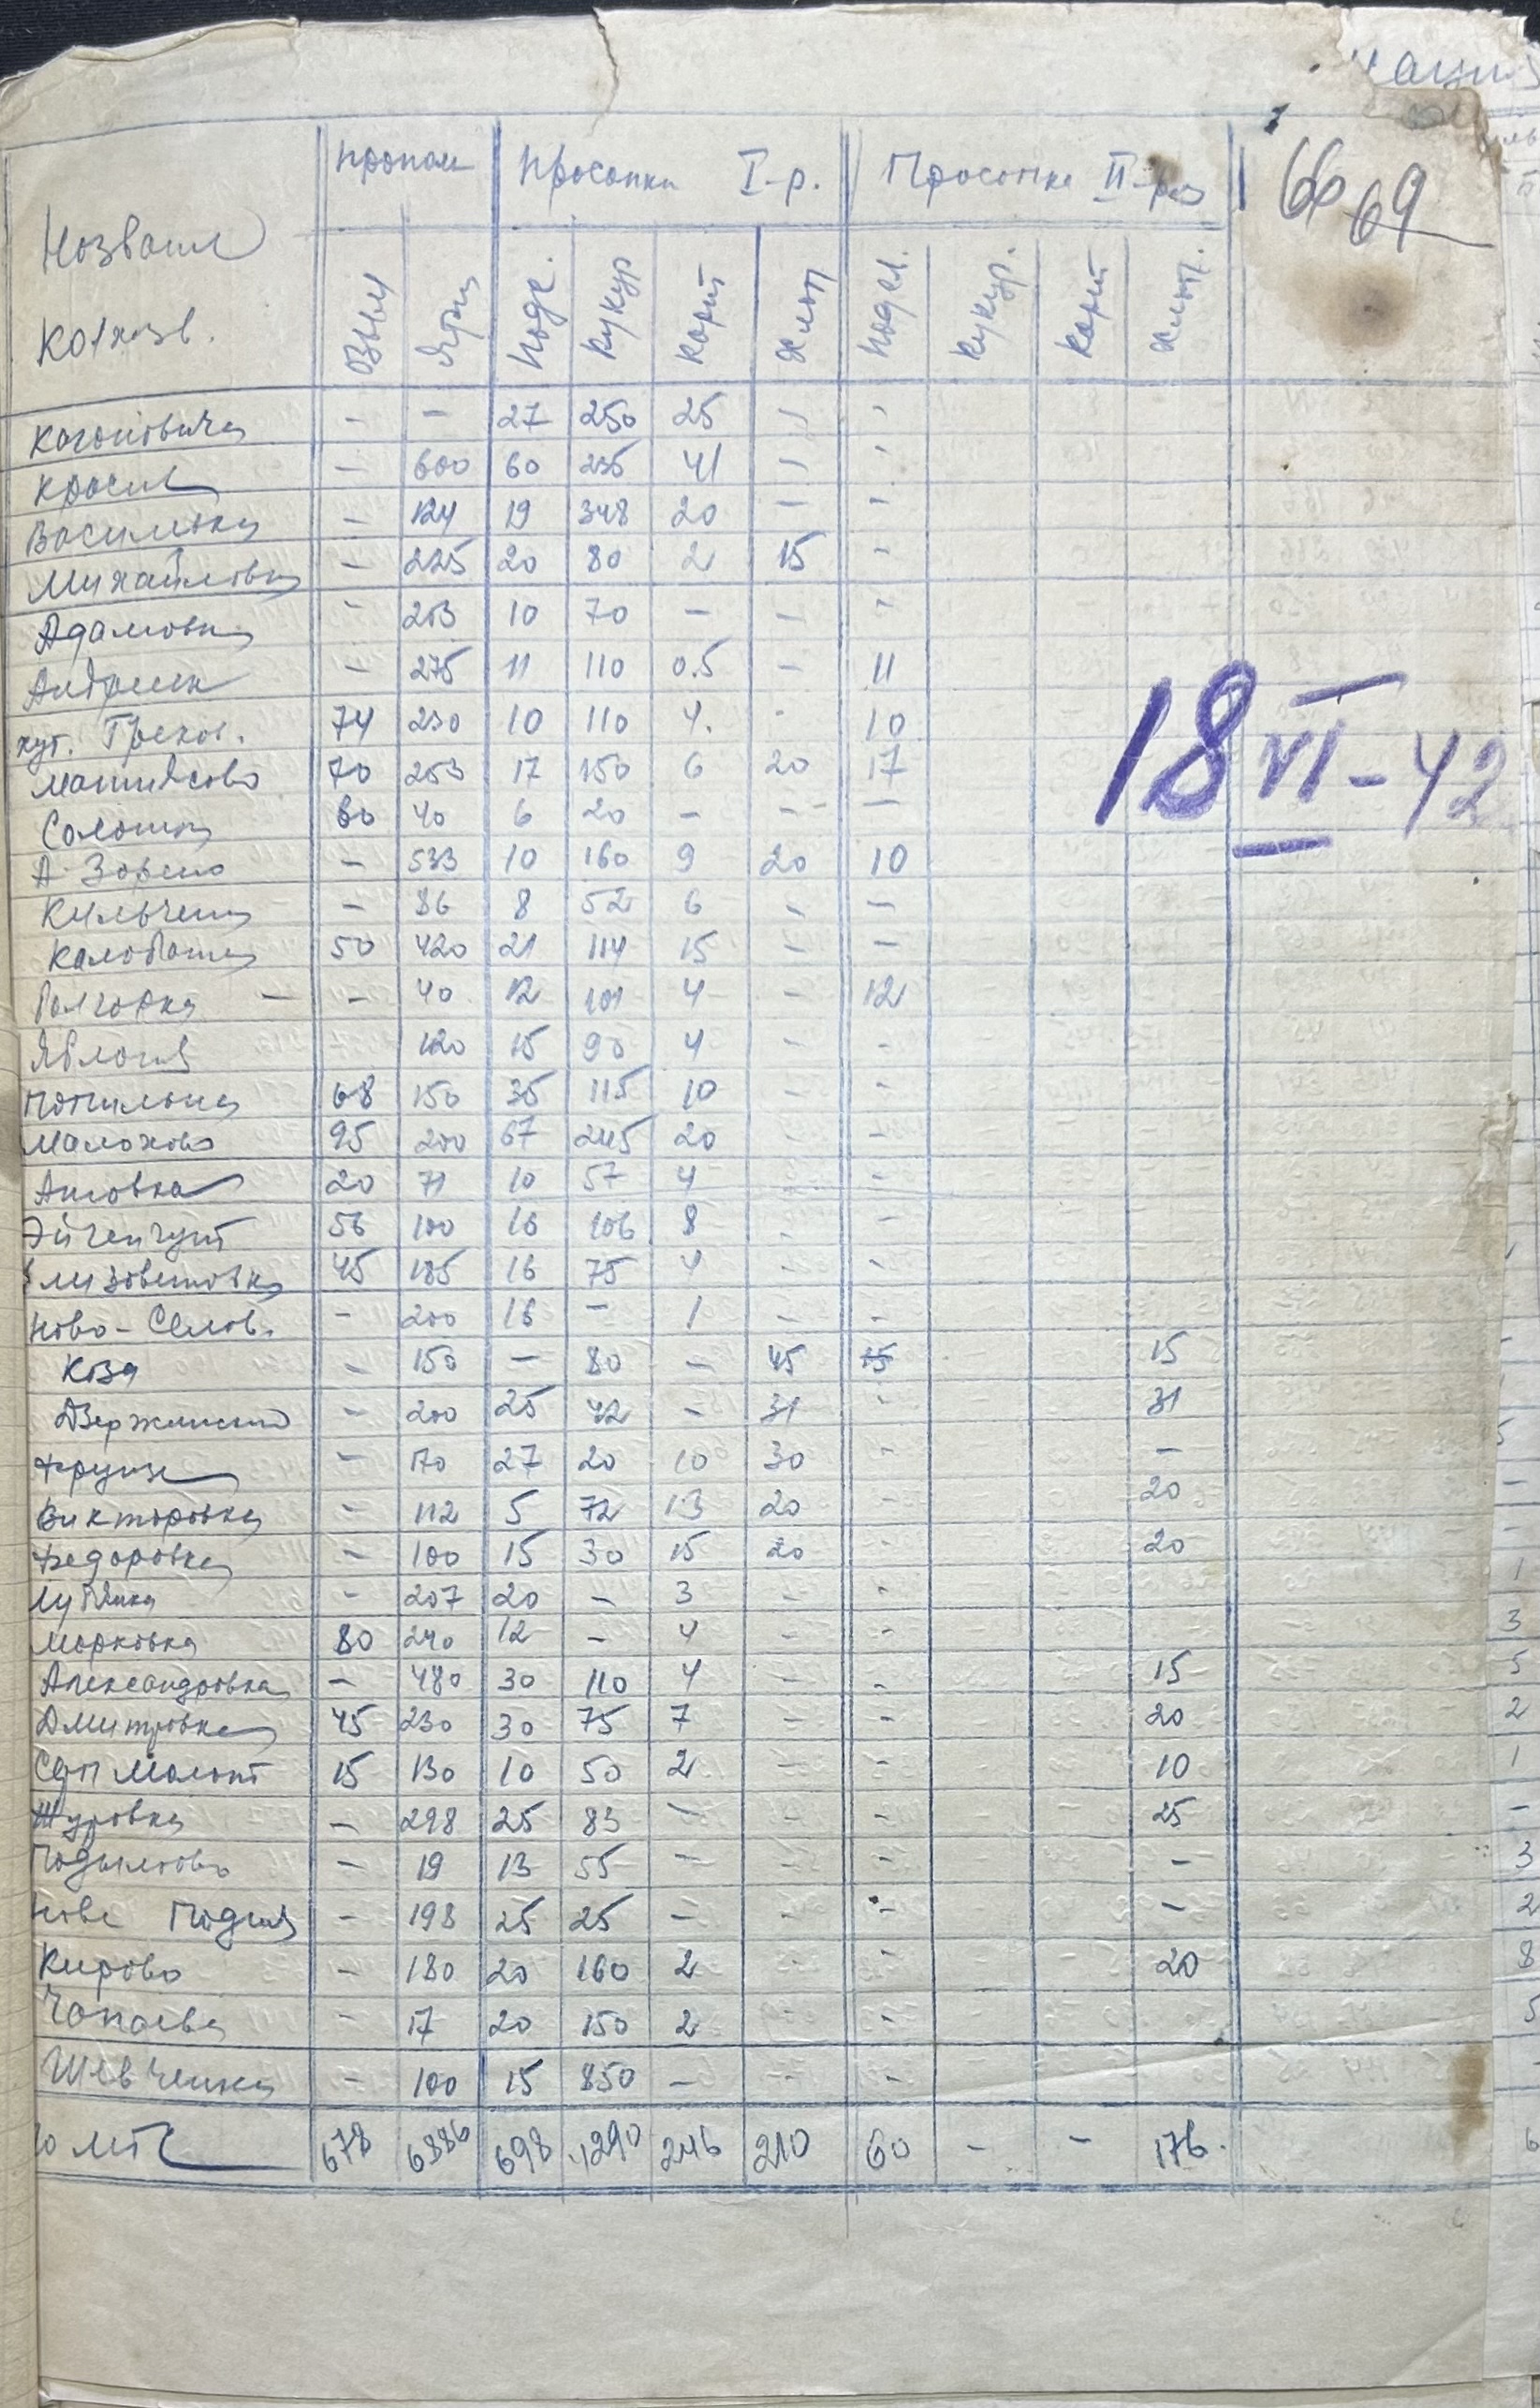 66 69
Пропол Просапки I-р. Просапке II-раз
Названи
колхозв.
Озим Ярин Подс. Кукур Карт Хлоп Подсл. Кукур. Карт Хлоп.
Когоновича - - 27 250 25 - -
Красив - 600 60 235 41 - -
Васильвка - 124 19 348 20 - -
Михайловка - 225 20 80 2 15 -
Адамовка - 253 10 70 - - -
Андреев - 275 11 110 0.5 - 11
хут. Греков. 74 230 10 110 4. - 10
Матиясово 70 253 17 150 6 20 17
80 40 6 20 - - -
А. Зорено - 533 10 160 9 20 10
- 86 8 52 6 - -
Калобатена 50 420 21 114 15 - -
- - 40 12 101 4 - 12
Яблоня 120 15 90 4 - -
Попильна 68 150 35 115 10 - -
Малахово 95 200 67 245 20 - -
Ановка 20 71 10 57 4 - -
Эйгенгут 56 100 16 106 8 - -
Елизоветовка 45 185 16 75 4 - -
Ново-Селов. - 200 16 - 1 - -
Коза - 150 - 80 - 45 15 15
Дзержинский - 200 25 42 - 31 - 31
Фрунзе - 170 27 20 10 30 - -
Викторовка - 112 5 72 13 20 - 20
Федоровка - 100 15 30 15 20 - 20
Лубянка - 207 20 - 3 - -
Морковка 80 240 12 - 4 - -
Александровка - 480 30 110 4 - - 15
Дмитровка 45 230 30 75 7 - - 20
Серп Молот 15 130 10 50 2 - - 10
Журовка - 298 25 83 - - - 25
Подымово - 19 13 55 - - - -
НовеПодил - 198 25 25 - - - -
Кирово - 180 20 160 2 - - 20
Чапаева - 17 20 150 2 - -
Шевченка - 100 15 850 - - -
МТС 678 6886 698 4290 246 210 60 - - 176.
18 VI - 42